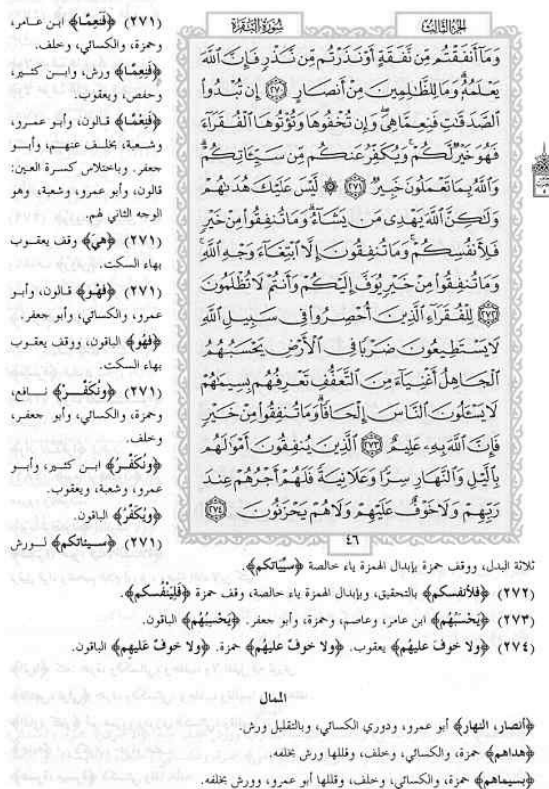 الجزء الثالث
سورة البقرة
وَمَآ أَنفَقْتُم مِّن نَّفَقَةٍ أَوْ نَذَرْتُم مِّن نَّذْرٍ فَإِنَّ ٱللَّهَ
يَعْلَمُهُۥ وَمَا لِلظَّـٰلِمِينَ مِنْ أَنصَارٍ ﴿٢٧٠﴾ إِن تُبْدُوا۟
ٱلصَّدَقَـٰتِ فَنِعِمَّا هِىَ وَإِن تُخْفُوهَا وَتُؤْتُوهَا ٱلْفُقَرَآءَ
فَهُوَ خَيْرٌ لَّكُمْ وَيُكَفِّرُ عَنكُم مِّن سَيِّـَٔاتِكُمْ
وَٱللَّهُ بِمَا تَعْمَلُونَ خَبِيرٌ ﴿٢٧١﴾ ۞ لَّيْسَ عَلَيْكَ هُدَىٰهُمْ
وَلَـٰكِنَّ ٱللَّهَ يَهْدِى مَن يَشَآءُ وَمَا تُنفِقُوا۟ مِنْ خَيْرٍ
فَلِأَنفُسِكُمْ وَمَا تُنفِقُونَ إِلَّا ٱبْتِغَآءَ وَجْهِ ٱللَّهِ
وَمَا تُنفِقُوا۟ مِنْ خَيْرٍ يُوَفَّ إِلَيْكُمْ وَأَنتُمْ لَا تُظْلَمُونَ
﴿٢٧٢﴾ لِلْفُقَرَآءِ ٱلَّذِينَ أُحْصِرُوا۟ فِى سَبِيلِ ٱللَّهِ
لَا يَسْتَطِيعُونَ ضَرْبًا فِى ٱلْأَرْضِ يَحْسَبُهُمُ
ٱلْجَاهِلُ أَغْنِيَآءَ مِنَ ٱلتَّعَفُّفِ تَعْرِفُهُم بِسِيمَـٰهُمْ
لَا يَسْـَٔلُونَ ٱلنَّاسَ إِلْحَافًا وَمَا تُنفِقُوا۟ مِنْ خَيْرٍ
فَإِنَّ ٱللَّهَ بِهِۦ عَلِيمٌ ﴿٢٧٣﴾ ٱلَّذِينَ يُنفِقُونَ أَمْوَٰلَهُم
بِٱلَّيْلِ وَٱلنَّهَارِ سِرًّا وَعَلَانِيَةً فَلَهُمْ أَجْرُهُمْ عِندَ
رَبِّهِمْ وَلَا خَوْفٌ عَلَيْهِمْ وَلَا هُمْ يَحْزَنُونَ ﴿٢٧٤﴾
٤٦
(٢٧١) ﴿فَنَعِمَّا﴾ ابن عامر،
وحمزة، والكسائي، وخلف.
﴿فَنِعِمَّا﴾ ورش، وابن كثير،
وحفص، ويعقوب.
﴿فَنِعْمَّا﴾ قالون، وأبو عمرو،
وشعبة، بخلف عنهم، وأبو
جعفر. وباختلاس كسرة العين:
قالون، وأبو عمرو، وشعبة، وهو
الوجه الثاني لهم.
(٢٧١) ﴿هيَ﴾ وقف يعقوب
بهاء السكت.
(٢٧١) ﴿فهْو﴾ قالون، وأبو
عمرو، والكسائي، وأبو جعفر.
﴿فهُو﴾ الباقون، ووقف يعقوب
بهاء السكت.
(٢٧١) ﴿ونُكَفِّرْ﴾ نافع،
وحمزة، والكسائي، وأبو جعفر،
وخلف.
﴿ونُكَفِّرُ﴾ ابن كثير، وأبو
عمرو، وشعبة، ويعقوب.
﴿ويُكَفِّرُ﴾ الباقون.
(٢٧١) ﴿سيئاتكم﴾ لورش
ثلاثة البدل، ووقف حمزة بإبدال الهمزة ياء خالصة ﴿سيِّيَاتكم﴾.
(٢٧٢) ﴿فلأنفسكم﴾ بالتحقيق، وبإبدال الهمزة ياء خالصة، وقف حمزة ﴿فَلِيَنْفُسكم﴾.
(٢٧٣) ﴿يَحْسَبُهُم﴾ ابن عامر، وعاصم، وحمزة، وأبو جعفر. ﴿يَحْسِبُهُم﴾ الباقون.
(٢٧٤) ﴿ولا خوفَ عليهُم﴾ يعقوب. ﴿ولا خوفٌ عليهُم﴾ حمزة. ﴿ولا خوفٌ عَلَيهِم﴾ الباقون.
الممال
﴿أنصار، النهار﴾ أبو عمرو، ودوري الكسائي، وبالتقليل ورش.
﴿هداهم﴾ حمزة، والكسائي، وخلف، وقللها ورش بخلفه.
﴿بسيماهم﴾ حمزة، والكسائي، وخلف، وقللها أبو عمرو، وورش بخلفه.